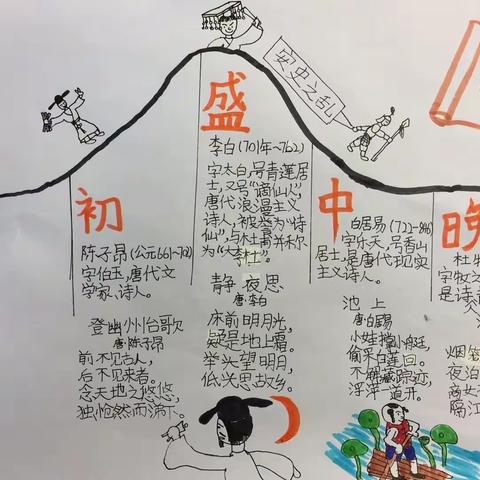 安史之乱
初
陈子昂(公元661~702)
字伯玉,唐代文
学家、诗人。
登幽州台歌
唐·陈子昂
前不见古人,
后不见来者。
念天地之悠悠,
独怆然而涕下。
盛
李白(701年~762)
字太白,号青莲居
士,又号“谪仙人”,
唐代浪漫主义
诗人,被誉为“诗
仙”,与杜甫并称
为“大李杜”。
静夜思
唐·李白
床前明月光,
疑是地上霜。
举头望明月,
低头思故乡。
中
白居易(722-846)
字乐天,号香山
居士,是唐代现实
主义诗人。
池上
唐·白居易
小娃撑小艇,
偷采白莲回。
不解藏踪迹,
浮萍一道开。
晚
杜牧
字牧之
是诗
烟笼
夜泊
商女
隔江